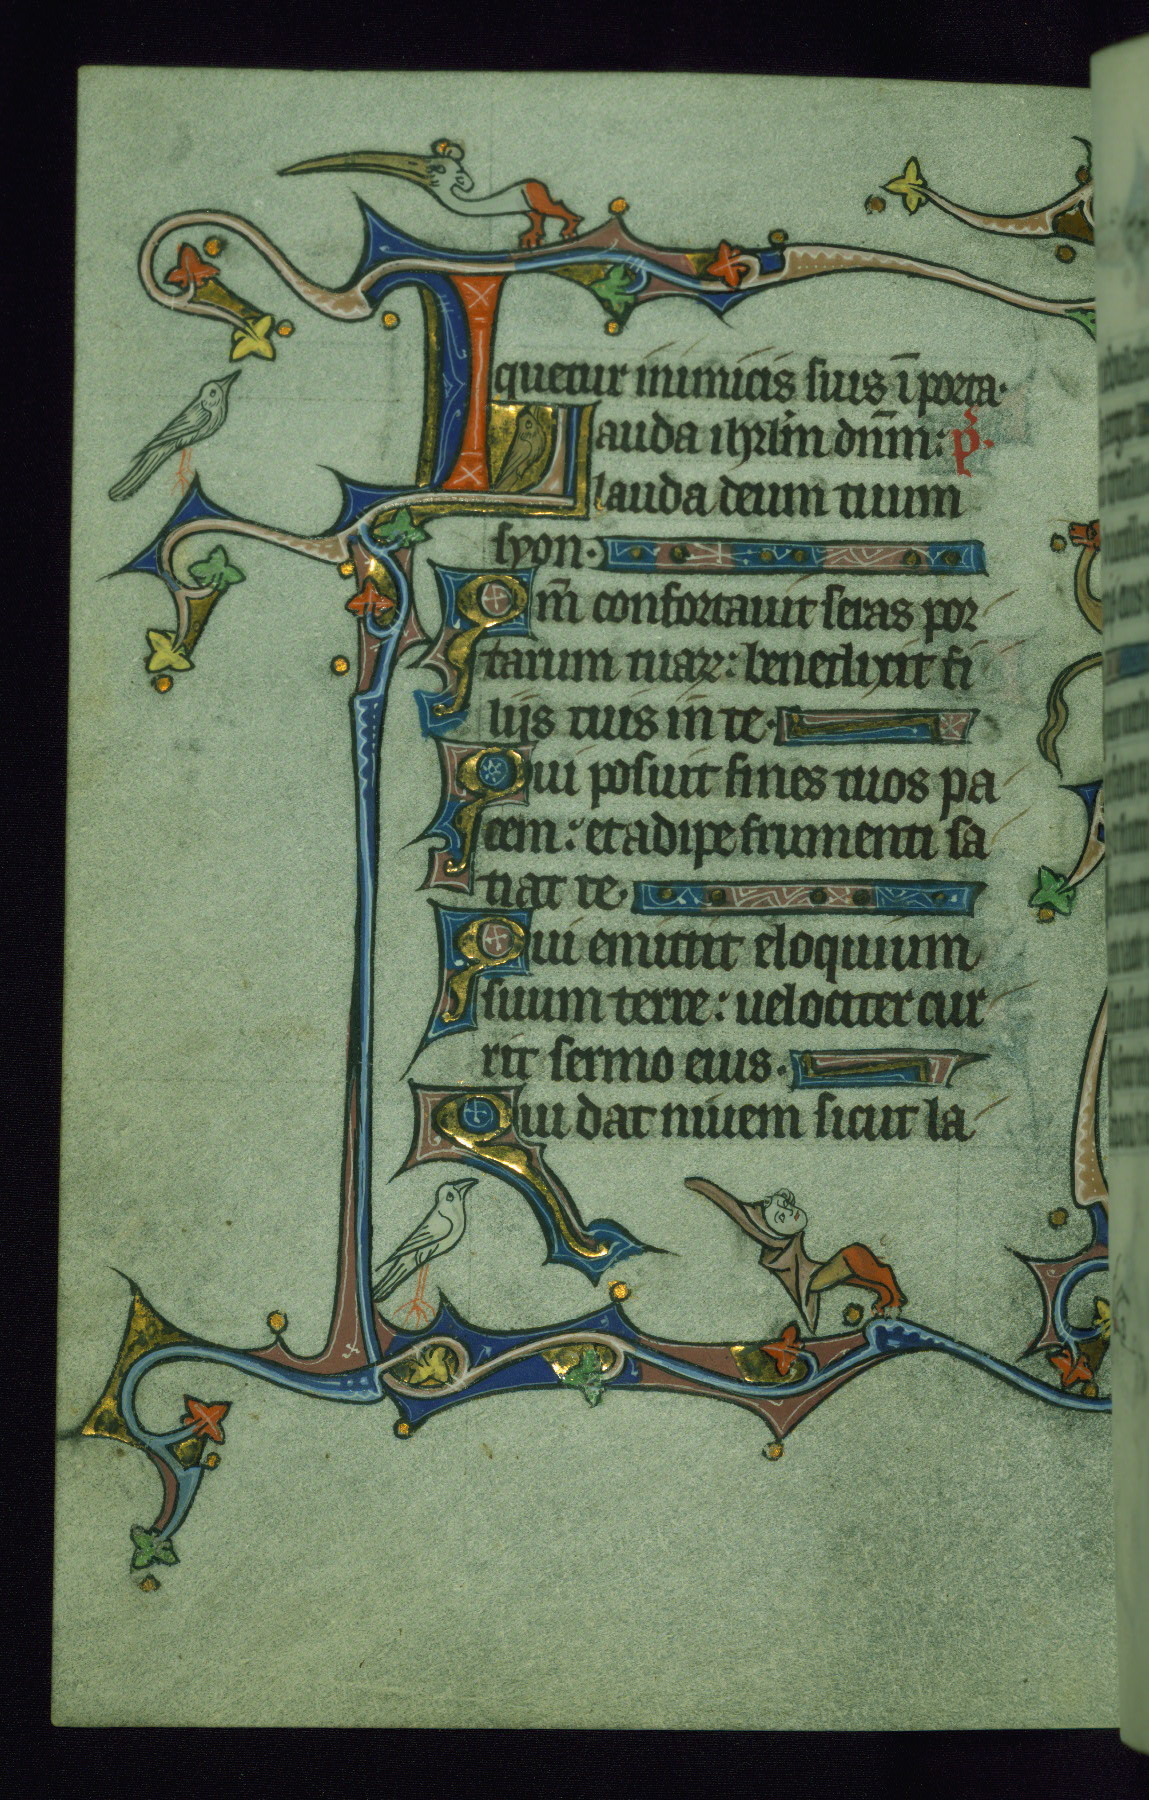 quetur inimicis suis ī porta·
Lauda ihrl̄m dn̄m: p̄s·
lauda deum tuum
syon·
Qm̄ confortauit seras por
tarum tuaꝝ: benedixit fi
liis tuis in te·
Qui posuit fines tuos pa
cem: et adipe frumenti sa
tiat te·
Qui emittit eloquium
suum terre: uelociter cur
rit sermo eius·
Qui dat niuem sicut la